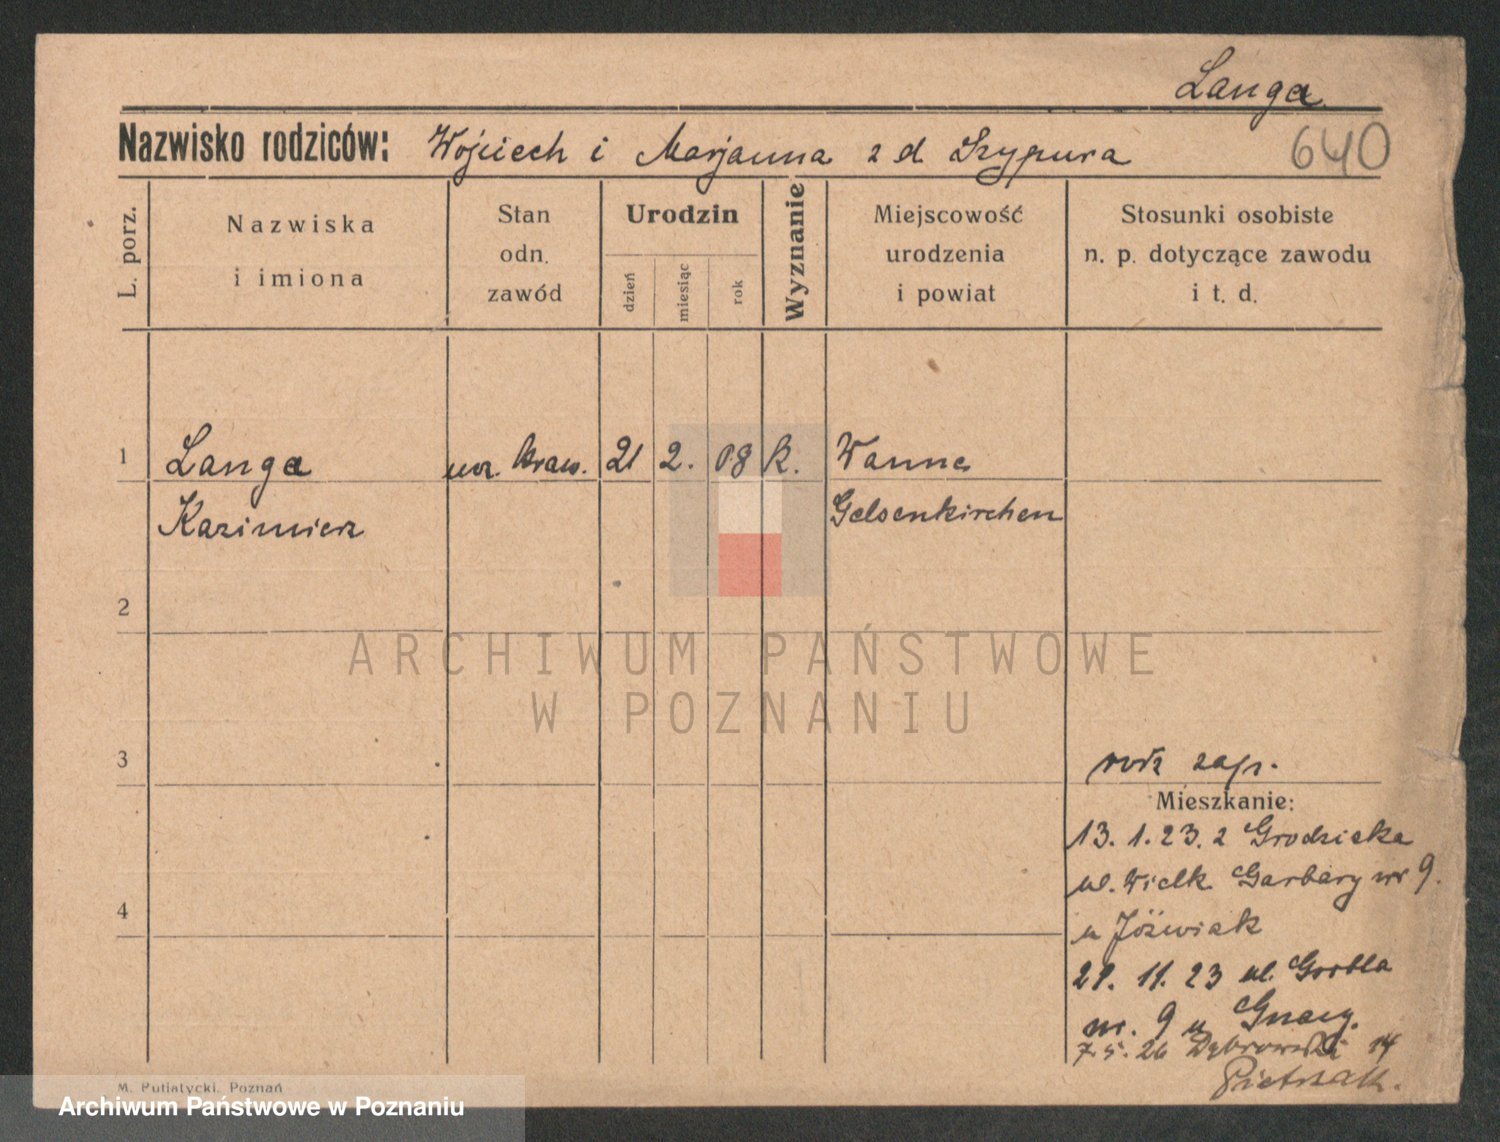 Langa
Nazwisko rodziców: Wojciech i Marjanna z d Szypura 640
L. porz.
Nazwiska
i imiona
Stan
odn.
zawód
Urodzin
dzień
miesiąc
rok
Wyznanie
Miejscowość
urodzenia
i powiat
Stosunki osobiste
n. p. dotyczące zawodu
i t. d.
1 Langa ucz. kraw. 21 2. 08 k. Wanne
Kazimierz Gelsenkirchen
2
ARCHIWUM PAŃSTWOWE
W POZNANIU
3 zap.
Mieszkanie:
13. 1. 23. z Grodziska
ul. Wielk Garbary nr 9.
u Jóźwiak
4
11. 23 ul. Grobla
nr. 9 u
7. 5. 26 Dąbrowski 14
Pietrzak.
M. Putiatycki, Poznań
Archiwum Państwowe w Poznaniu